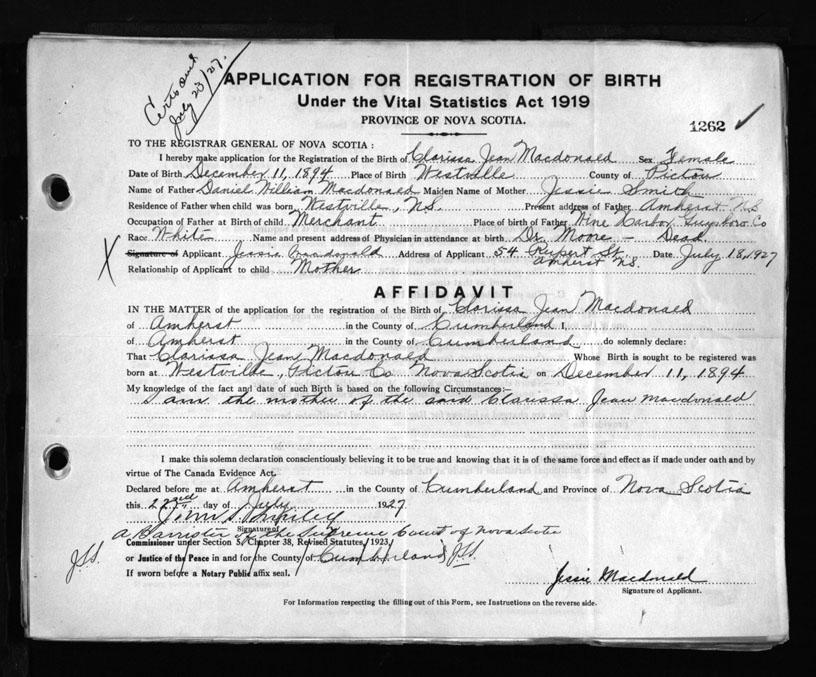 Certs out
July 28/27.
APPLICATION FOR REGISTRATION OF BIRTH
Under the Vital Statistics Act 1919
PROVINCE OF NOVA SCOTIA.
1262 ✓
TO THE REGISTRAR GENERAL OF NOVA SCOTIA :
I hereby make application for the Registration of the Birth of Clarissa Jean Macdonald Sex Female
Date of Birth December 11, 1894 Place of Birth Westville County of Pictou
Name of Father Daniel William Macdonald Maiden Name of Mother Jessie Smith
Residence of Father when child was born Westville, N.S. Present address of Father Amherst N.S
Occupation of Father at Birth of child Merchant Place of birth of Father Wine Harbor Guysboro Co
Race White Name and present address of Physician in attendance at birth Dr. Moore — Dead
X Signature of Applicant Jessie Macdonald Address of Applicant 54 Rupert St. Amherst N.S. Date July 18, 1927
Relationship of Applicant to child Mother
AFFIDAVIT
IN THE MATTER of the application for the registration of the Birth of Clarissa Jean Macdonald
of Amherst in the County of Cumberland I,
of Amherst in the County of Cumberland do solemnly declare:
That Clarissa Jean Macdonald Whose Birth is sought to be registered was
born at Westville, Pictou Co Nova Scotia on December 11, 1894
My knowledge of the fact and date of such Birth is based on the following Circumstances:—
I am the mother of the said Clarissa Jean Macdonald
I make this solemn declaration conscientiously believing it to be true and knowing that it is of the same force and effect as if made under oath and by
virtue of The Canada Evidence Act.
Declared before me at Amherst in the County of Cumberland and Province of Nova Scotia
this 22nd day of July 1927
Signature of
A Barrister of the Supreme Court of Nova Scotia
Commissioner under Section 3, Chapter 38, Revised Statutes, 1923,
or Justice of the Peace in and for the County of Cumberland
If sworn before a Notary Public affix seal.
Jessie Macdonald
Signature of Applicant.
For Information respecting the filling out of this Form, see Instructions on the reverse side.